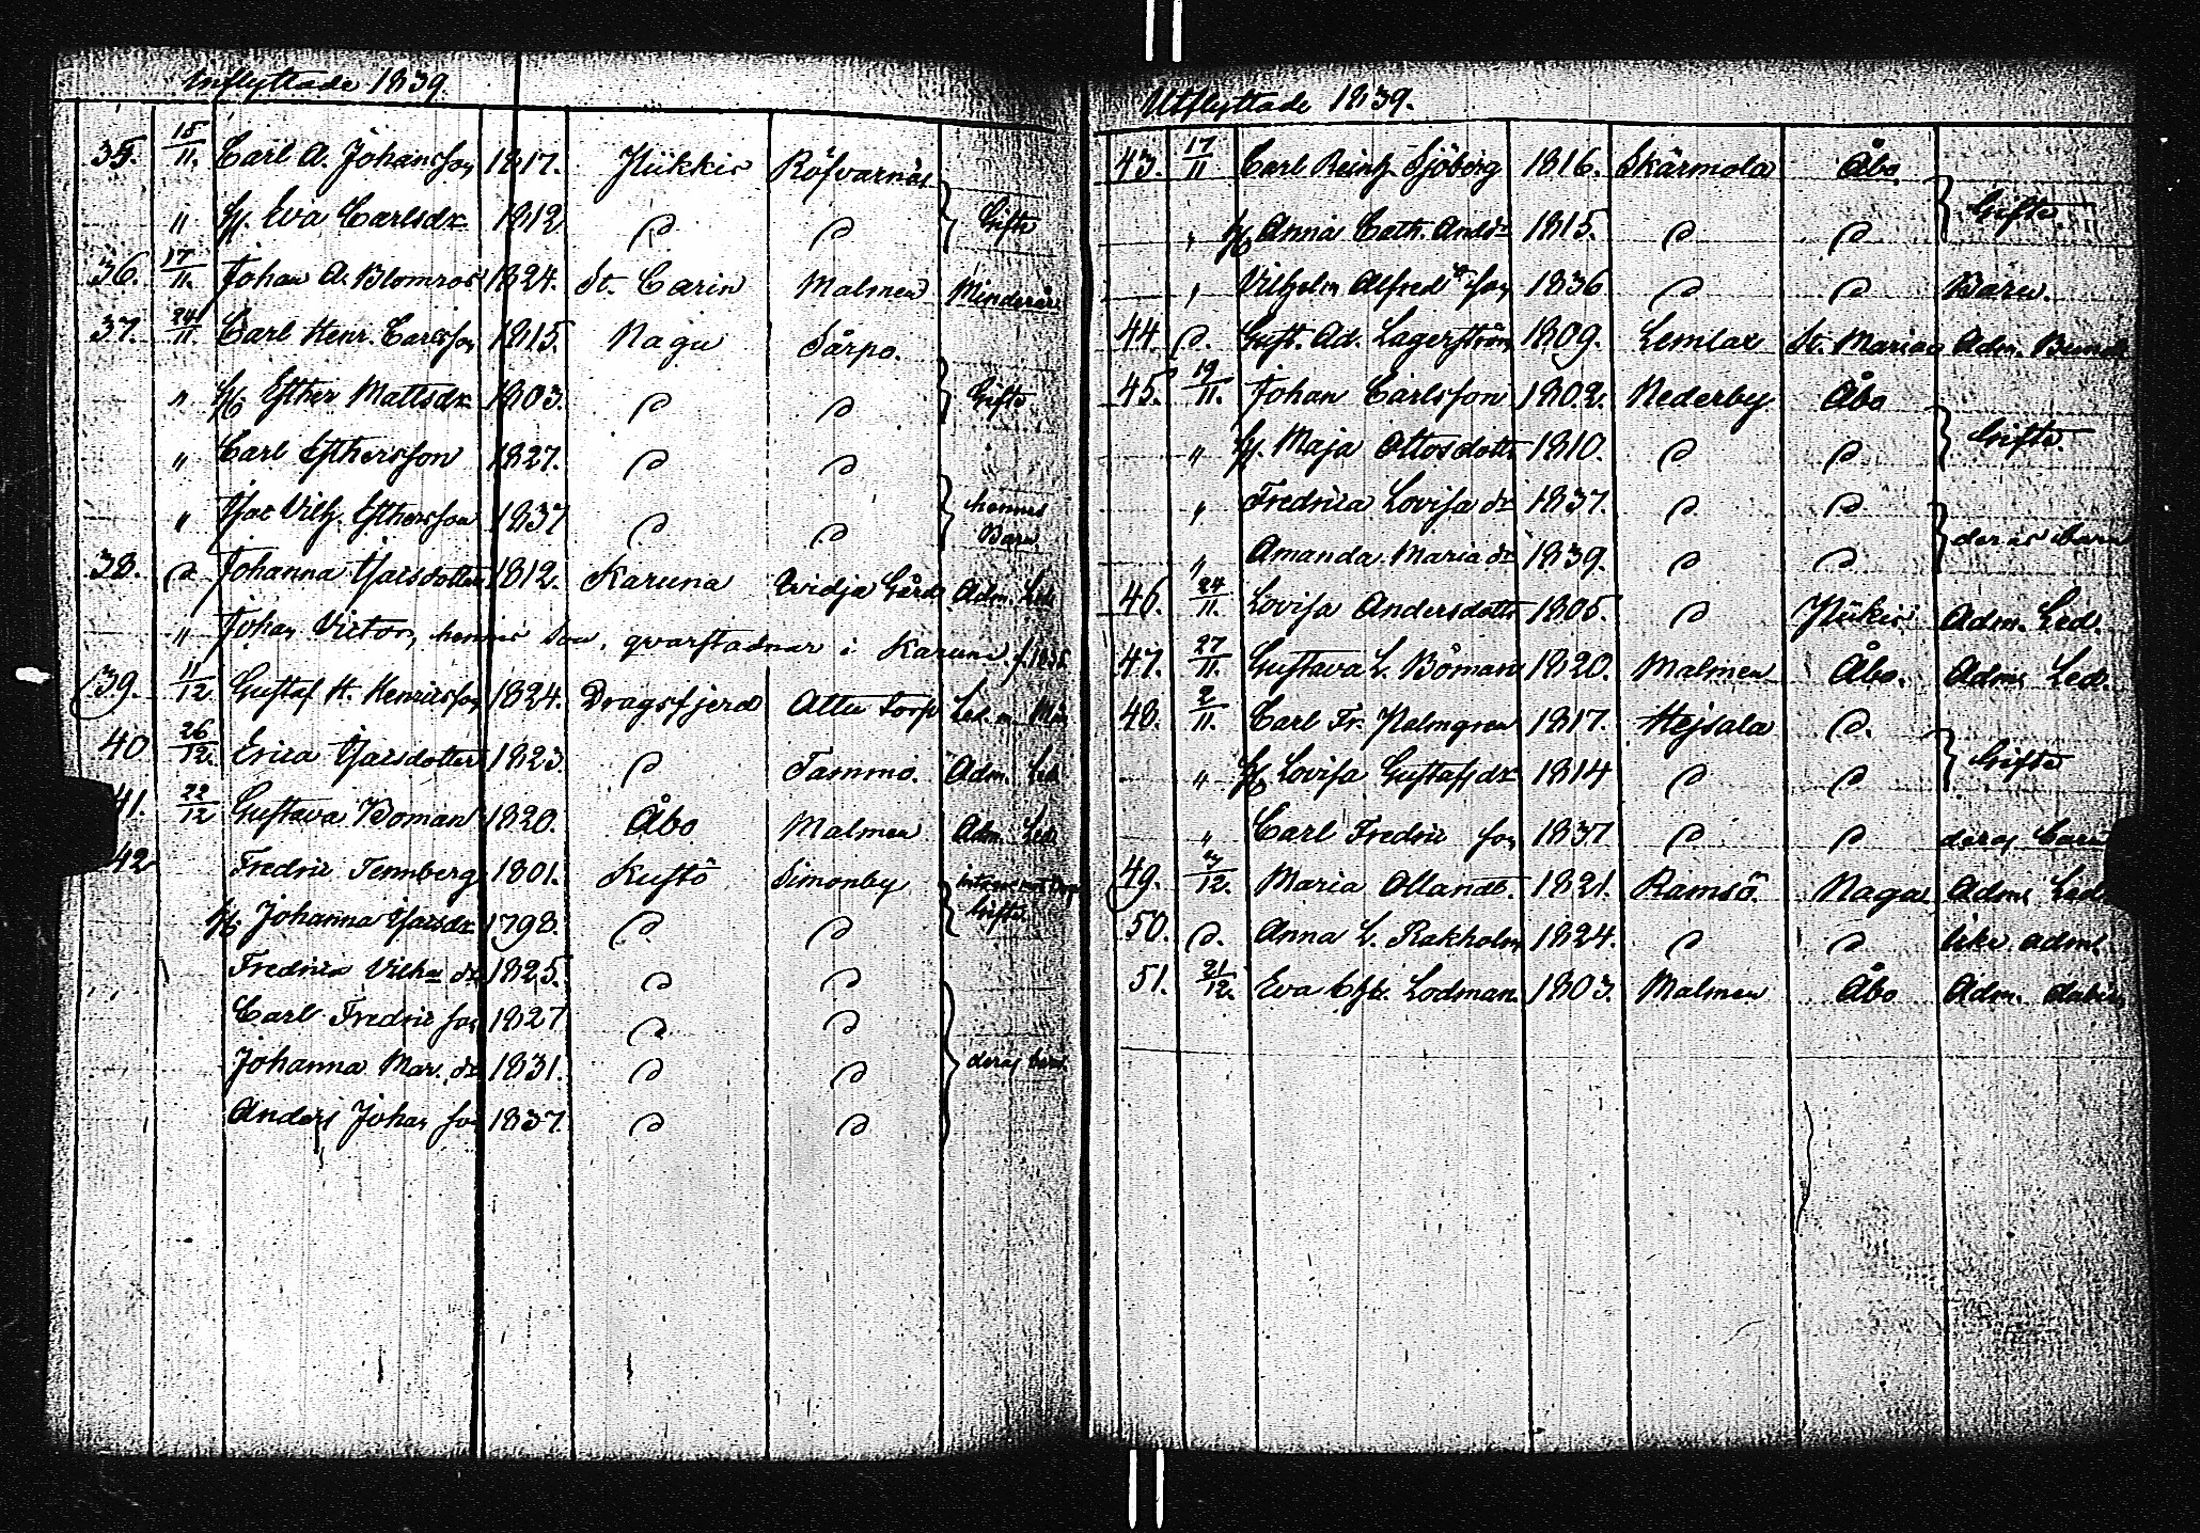 Inflyttade 1839.
35. 18/11. Carl A. Johansson 1817. Hiikkis Röfvarnäs
" h. Eva Carlsdr 1812 Gifte
36. 17/11. Johan A. Blomros 1824. St. Carin Malmen Minderår
37. 24/11. Carl Henr. Carlsson 1815. Nagu Sårpo.
" h. Esther Mattsdr 1803. Gifte
" Carl Esthersson 1827.
" Isac Vilh. Esthersson 1837 hennes Barn
38. Johanna Isacsdotter 1812. Karuna Qvidja Gård Adm. Led.
" Johan Victor, hennes Son, qvarstadnar i Karuna
39. 11/12 Gustaf H. Henricsson 1824. Dragsfjerd Attu Torp
40 26/12. Erica Isacsdotter 1823. Tammo. Adm. Led
41. 22/12 Gustava Boman 1820. Åbo Malmen Adm. Led.
42 Fredric Tennberg 1801. Kustö Simonby
h. Johanna Isacsdr 1798. Gifte
Fredrica Vilha dr 1825.
Carl Fredric son 1827
Johanna Mar. dr 1831. deras barn
Anders Johan son 1837.
Utflyttade 1839.
43. 17/11 Carl Reinh. Sjöberg 1816. Skärmola Åbo
" h. Anna Cath. Andsdr 1815. Gifte
" Vilhelm Alfred son 1836 Barn.
44 Gust. Ad. Lagerström 1809. Lemlax St. Marias Adm.
45. 19/11. Johan Carlsson 1802. Nederby Åbo
" h. Maja Ottosdottr 1810. Gifte
" Fredrica Lovisa dr 1837.
" Amanda Maria dr 1839. deras barn
46. 24/11. Lovisa Andersdottr 1805. Hiikis Adm. Led.
47. 27/11. Gustava L. Böman 1820. Malmen Åbo. Adm. Led.
48. 2/11. Carl Fr. Palmgren 1817. Hejsala
" h. Lovisa Gustafsdr 1814 Gifte
" Carl Fredric son 1837 deras barn
49. /12. Maria Ollandt. 1821. Ramsö. Nagu Adm. Led.
50. Anna L. Rakholm 1824. like adm.
51. 21/12. Eva Lodman 1803. Malmen Åbo Adm.